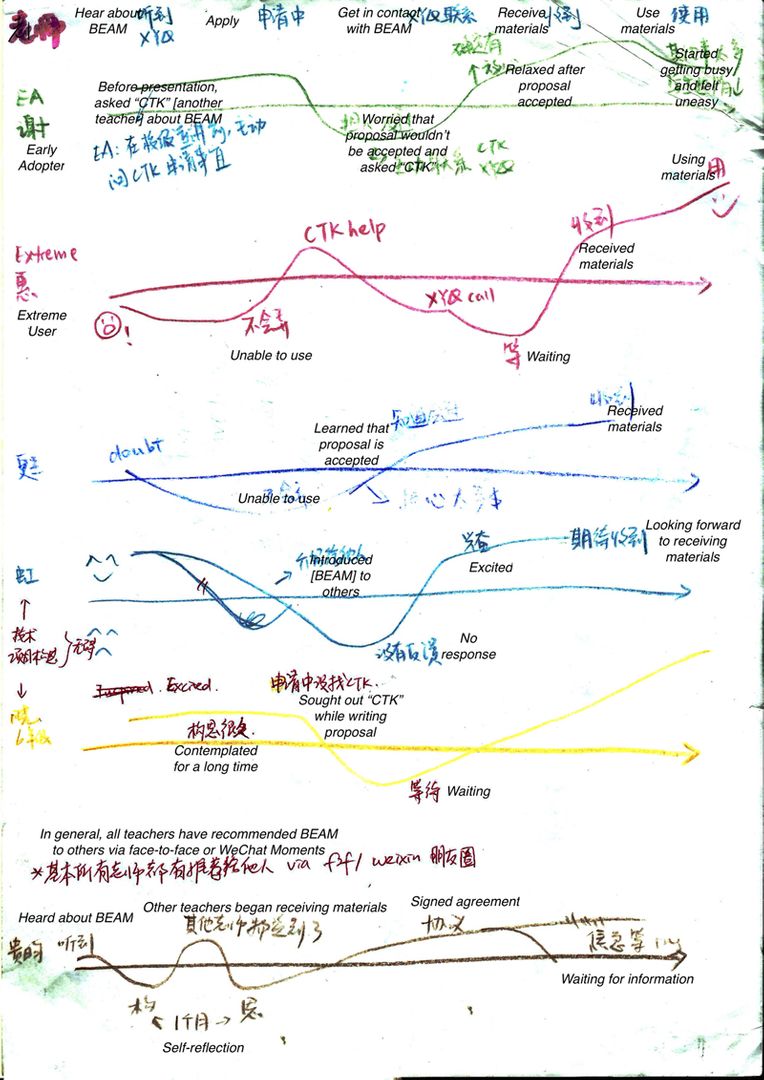 老师
Hear about
BEAM
听到
XYQ
Apply
申请中
Get in contact
with BEAM
XYQ 联系
Receive
materials
收到
Use
materials
使用
EA
谢
Early
Adopter
Before presentation,
asked “CTK” [another
teacher] about BEAM
Worried that
proposal wouldn’t
be accepted and
asked “CTK”
CTK
XYQ
Relaxed after
proposal
accepted
Started
getting busy
and felt
uneasy
Extreme
惠
Extreme
User
!
不会弄
Unable to use
CTK help
XYQ call
等
Waiting
收到
Received
materials
Using
materials
用
doubt
Unable to use
Learned that
proposal is
accepted
收到
Received
materials
虹
Introduced
[BEAM] to
others
没有反馈
No
response
兴奋
Excited
期待收到
Looking forward
to receiving
materials
技术
Excited.
构思很久.
Contemplated
for a long time
申请中没找CTK.
Sought out “CTK”
while writing
proposal
等待
Waiting
In general, all teachers have recommended BEAM
to others via face-to-face or WeChat Moments
*基本所有老师都有推荐给他人 via f2f / weixin 朋友圈
Heard about BEAM
听到
Other teachers began receiving materials
Signed agreement
协议
信息等
Waiting for information
构 ← 1个月 → 思
Self-reflection